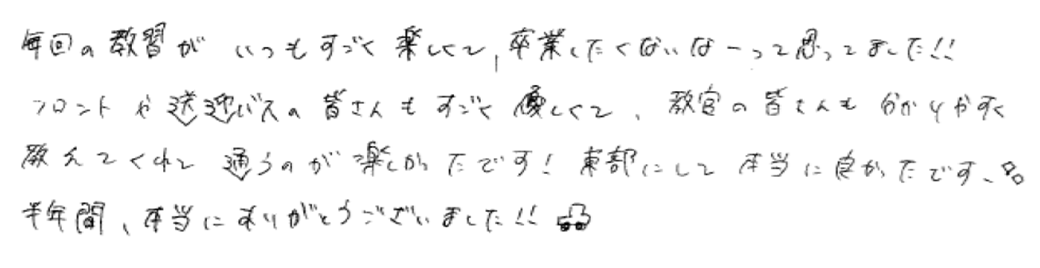 毎回の教習がいつもすごく楽しくて、卒業したくないなーって思ってました!!
フロントや送迎バスの皆さんもすごく優しくて、教官の皆さんも分かりやすく
教えてくれて通うのが楽しかったです！東部にして本当に良かったです。
半年間、本当にありがとうございました!!